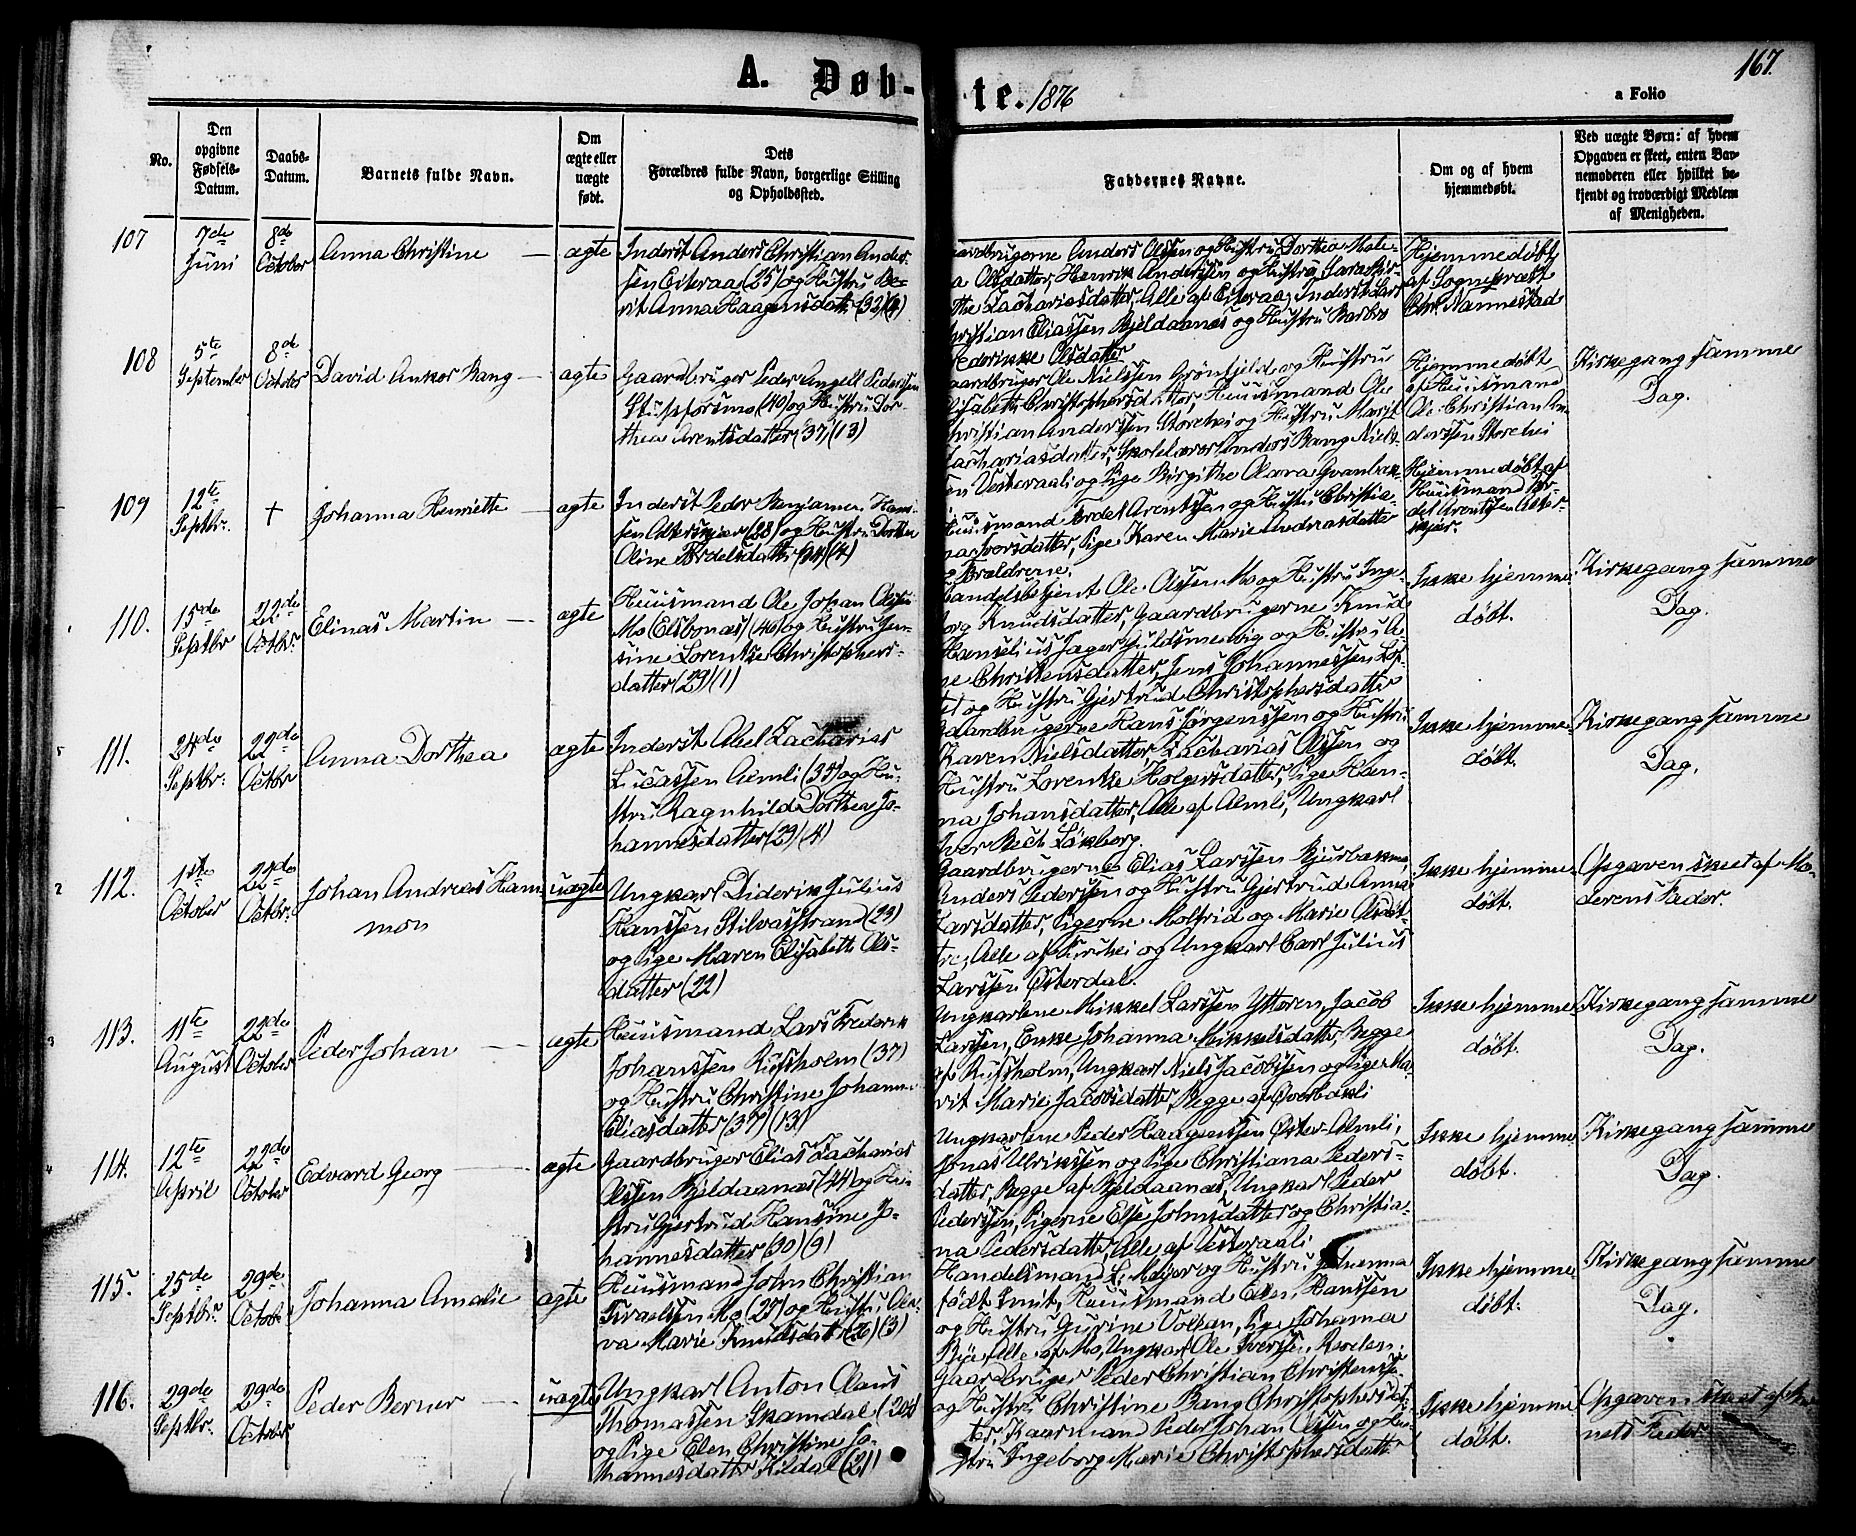 167.
A. Døb-te. 1876
a Folio
No.
Den opgivne Fødsels-Datum.
Daabs-Datum.
Barnets fulde Navn.
Om ægte eller uægte født.
Dets Forældres fulde Navn, borgerlige Stilling og Opholdssted.
Faddernes Navne.
Om og af hvem hjemmedøbt.
Ved uægte Børn: af hvem Opgaven er skeet, enten Barnemoderen eller hvilket bekjendt og troværdigt Medlem af Menigheden.
107
7de Juni
8de October
Anna Christine
ægte
Inderst Anders Christian Ander-
sen Eiteraa (35) og Hustru Be-
rit Anna Haagensdatt. (32) (4)
Gaardbrugerne Anders Olsen og Hustru Dorthea Male-
na Olsdatter, Henrik Anderssen og Hustru Sara Bir-
the Zachariasdatter, Alle af Eiteraa, Inderst Lars
Christian Eliassen Bjeldaanæs og Hustru Barbro
Frederikke Olsdatter
Hjemmedøbt
af Sognepræst
Chr. Nannestad
108
5te September
8de October
David Anker Bang
ægte
Gaardbruger Peder Angell Pedersen
Stupforsmo (40) og Hustru Dor-
thea Arentsdatter (37) (13)
Gaardbruger Ole Nielssen Grønfjeld og Hustru
Elisabeth Christophersdatter, Huusmand Ole
Christian Anderssen Storehei og Hustru Marit
Zachariasdatter, Skolelærer Anders Bang Niels-
sen Vesteraali og Pige Birgithe Olava
Hjemmedøbt
af Huusmand
Ole Christian An-
derssen Storehei
Kirkegang samme
Dag.
109
12te Septbr.
+
Johanna Henriette
ægte
Inderst Peder Benjamin Han-
sen Alterskjær (28) og Hustru Dorthea
Oline Tordelsdatter (24) (4)
Huusmand Tordel Arentssen og Hustru Christia-
na Iversdatter, Pige Karen Marie Andreasdatter
og Forældrene.
Hjemmedøbt af
Huusmand Tor-
del Arentssen Alter-
skjær.
110.
15de Septbr
22de Octbr.
Elinas Martin
ægte
Huusmand Ole Johan Olssen
Mo (Elsbonæs) (46) og Hustru Jen-
sine Lorentse Christophers-
datter (29) (1)
Handelsbetjent Ole Olssen Mo og Hustru Inge-
borg Knudsdatter, Gaardbrugerne Knud
Hanselius Jager Guldsmedvig og Hustru A-
ne Christensdatter, Jens Johannessen
og Hustru Gjertrud Christophersdatter
Ikke hjemme-
døbt.
Kirkegang samme
Dag.
111.
24de Septbr.
22de Octbr
Anna Dorthea
ægte
Inderst Abel Zacharias
Lucassen Almli (35) og Hu-
stru Ragnhild Dorthea Jo-
hannesdatter (29) (4)
Gaardbrugerne Hans Jørgenssen og Hustru
Karen Nielsdatter, Zacharias Olssen og
Hustru Lorentse Holgersdatter, Pige Han-
na Johansdatter, Alle af Almli, Ungkarl
Iver Bech Løkberg.
Ikke hjemme-
døbt.
Kirkegang samme
Dag.
112.
1ste October
22de Octbr.
Johan Andreas Ham-
mon
uægte
Ungkarl Diderik Julius
Hanssen Stilvasstrand (29)
og Pige Maren Elisabeth Ols-
datter (22)
Gaardbrugerne Elias Larssen Bjurbækmo,
Anders Pederssen og Hustru Gjertrud Anna
Larsdatter, Pigerne Molfrid og Marie Olsdøt-
tre, Alle af Furuhei og Ungkarl Carl Julius
Larssen Østerdal.
Ikke hjemme-
døbt.
Opgaven skeet af Mo-
derens Fader.
113.
11te August
22de October
Peder Johan
ægte
Huusmand Lars Frederik
Johanssen Rufsholm (37)
og Hustru Christine Johanna
Eliasdatter (37) (13)
Ungkarlene Mikkel Larssen Ytteren, Jacob
Larssen, Enke Johanna Mikkelsdatter, Begge
af Rufsholm, Ungkarl Niels Jacobssen og Pige Ma-
rit Marie Jacobsdatter, Begge af
Ikke hjemme-
døbt.
Kirkegang samme
Dag.
114.
12te April
22de October
Edvard Georg
ægte
Gaardbruger Elias Zacharias
Olssen Bjeldaanæs (44) og Hu-
stru Gjertrud Hansine Jo-
hannesdatter (30) (9)
Ungkarlene Peder Haagenssen Øster-Almli,
Jonas Ulrikssen og Pige Christiana Peders-
datter, Begge af Bjeldaanæs, Ungkarl Peder
Pederssen, Pigerne Else Johnsdatter og Christia-
na Pedersdatter, Alle af Vesteraali
Ikke hjemme-
døbt.
Kirkegang samme
Dag.
115.
25de Septbr.
29de Octobr
Johanna Amalie
ægte
Huusmand John Christian
Israelsen Mo (27) og Hustru Ole-
va Marie Knudsdatt. (26) (3)
Handelsmand L. Meyer og Hustru Johanna
født Smit, Huusmand Edv. Hanssen
og Hustru Gurine Vollan, Pige Johanna
Alle af Mo, Ungkarl Ole Iverssen
Ikke hjemme-
døbt.
Kirkegang samme
Dag.
116.
29de Septbr.
29de October
Peder Berner
uægte
Ungkarl Anton Olaus
Thomassen Skamdal (20½)
og Pige Elen Christine Jo-
hannesdatter Kildal (21)
Gaardbruger Peder Christian Christenss.
og Hustru Christine Bang Christophersdat-
ter, Kaarmand Peder Johan Olssen og Hu-
stru Ingeborg Marie Christophersdatt.
Ikke hjemme-
døbt.
Opgaven skeet af Bar-
nets Fader